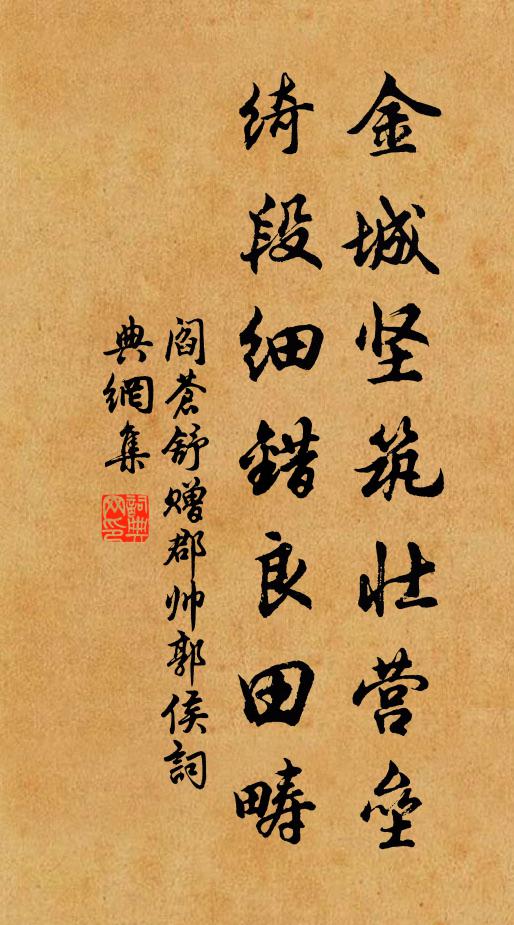 金城坚筑壮营垒
绮段细错良田畴
阎苍舒赠郡帅郭侯詞
典網集
詞典网印